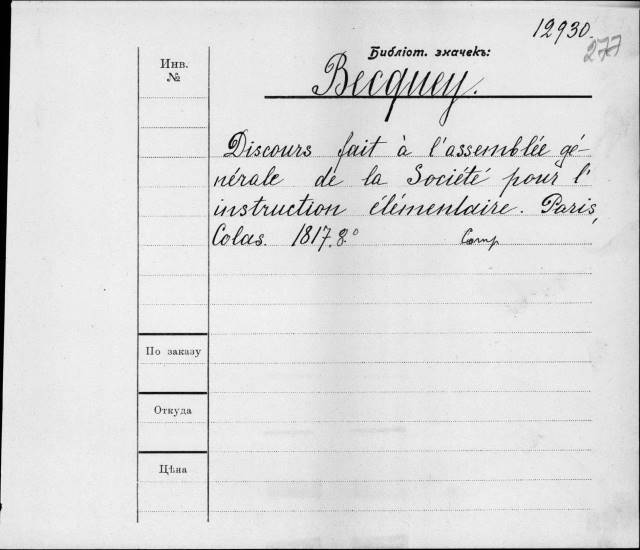 12930.
277
Библіот. значекъ:
Инв.
№
Becquey.
Discours fait à l'assemblée gé-
nérale de la Société pour l'
instruction élémentaire. Paris,
Colas. 1817. 8.°
Comp
По заказу
Откуда
Цѣна